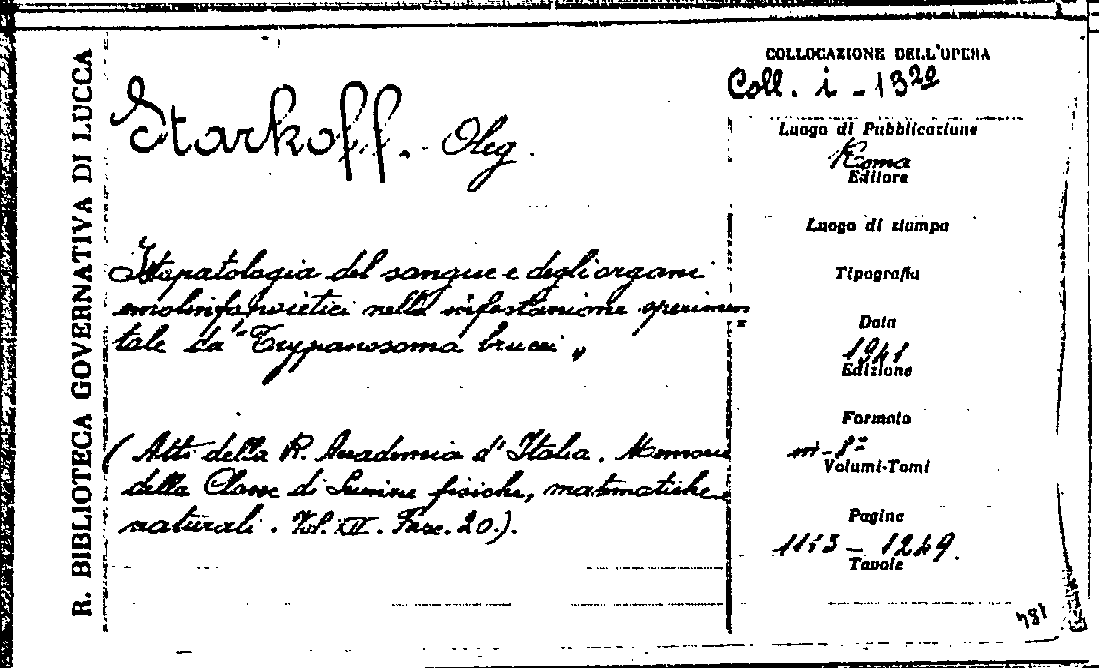 R. BIBLIOTECA GOVERNATIVA DI LUCCA
Starkoff. Oleg.
Istopatologia del sangue e degli organi
emolinfopoietici nella infestazione sperimen=
tale da "Trypanosoma brucei"
(Atti della R. Accademia d'Italia. Memorie
della Classe di Scienze fisiche, matematiche e
naturali. Vol. XII. Fasc. 20.).
COLLOCAZIONE DELL'OPERA
Coll. i - 1322
Luogo di Pubblicazione
Roma
Editore
Luogo di stampa
Tipografia
Data
1941
Edizione
Formato
in-8º
Volumi-Tomi
Pagine
1153 - 1249.
Tavole